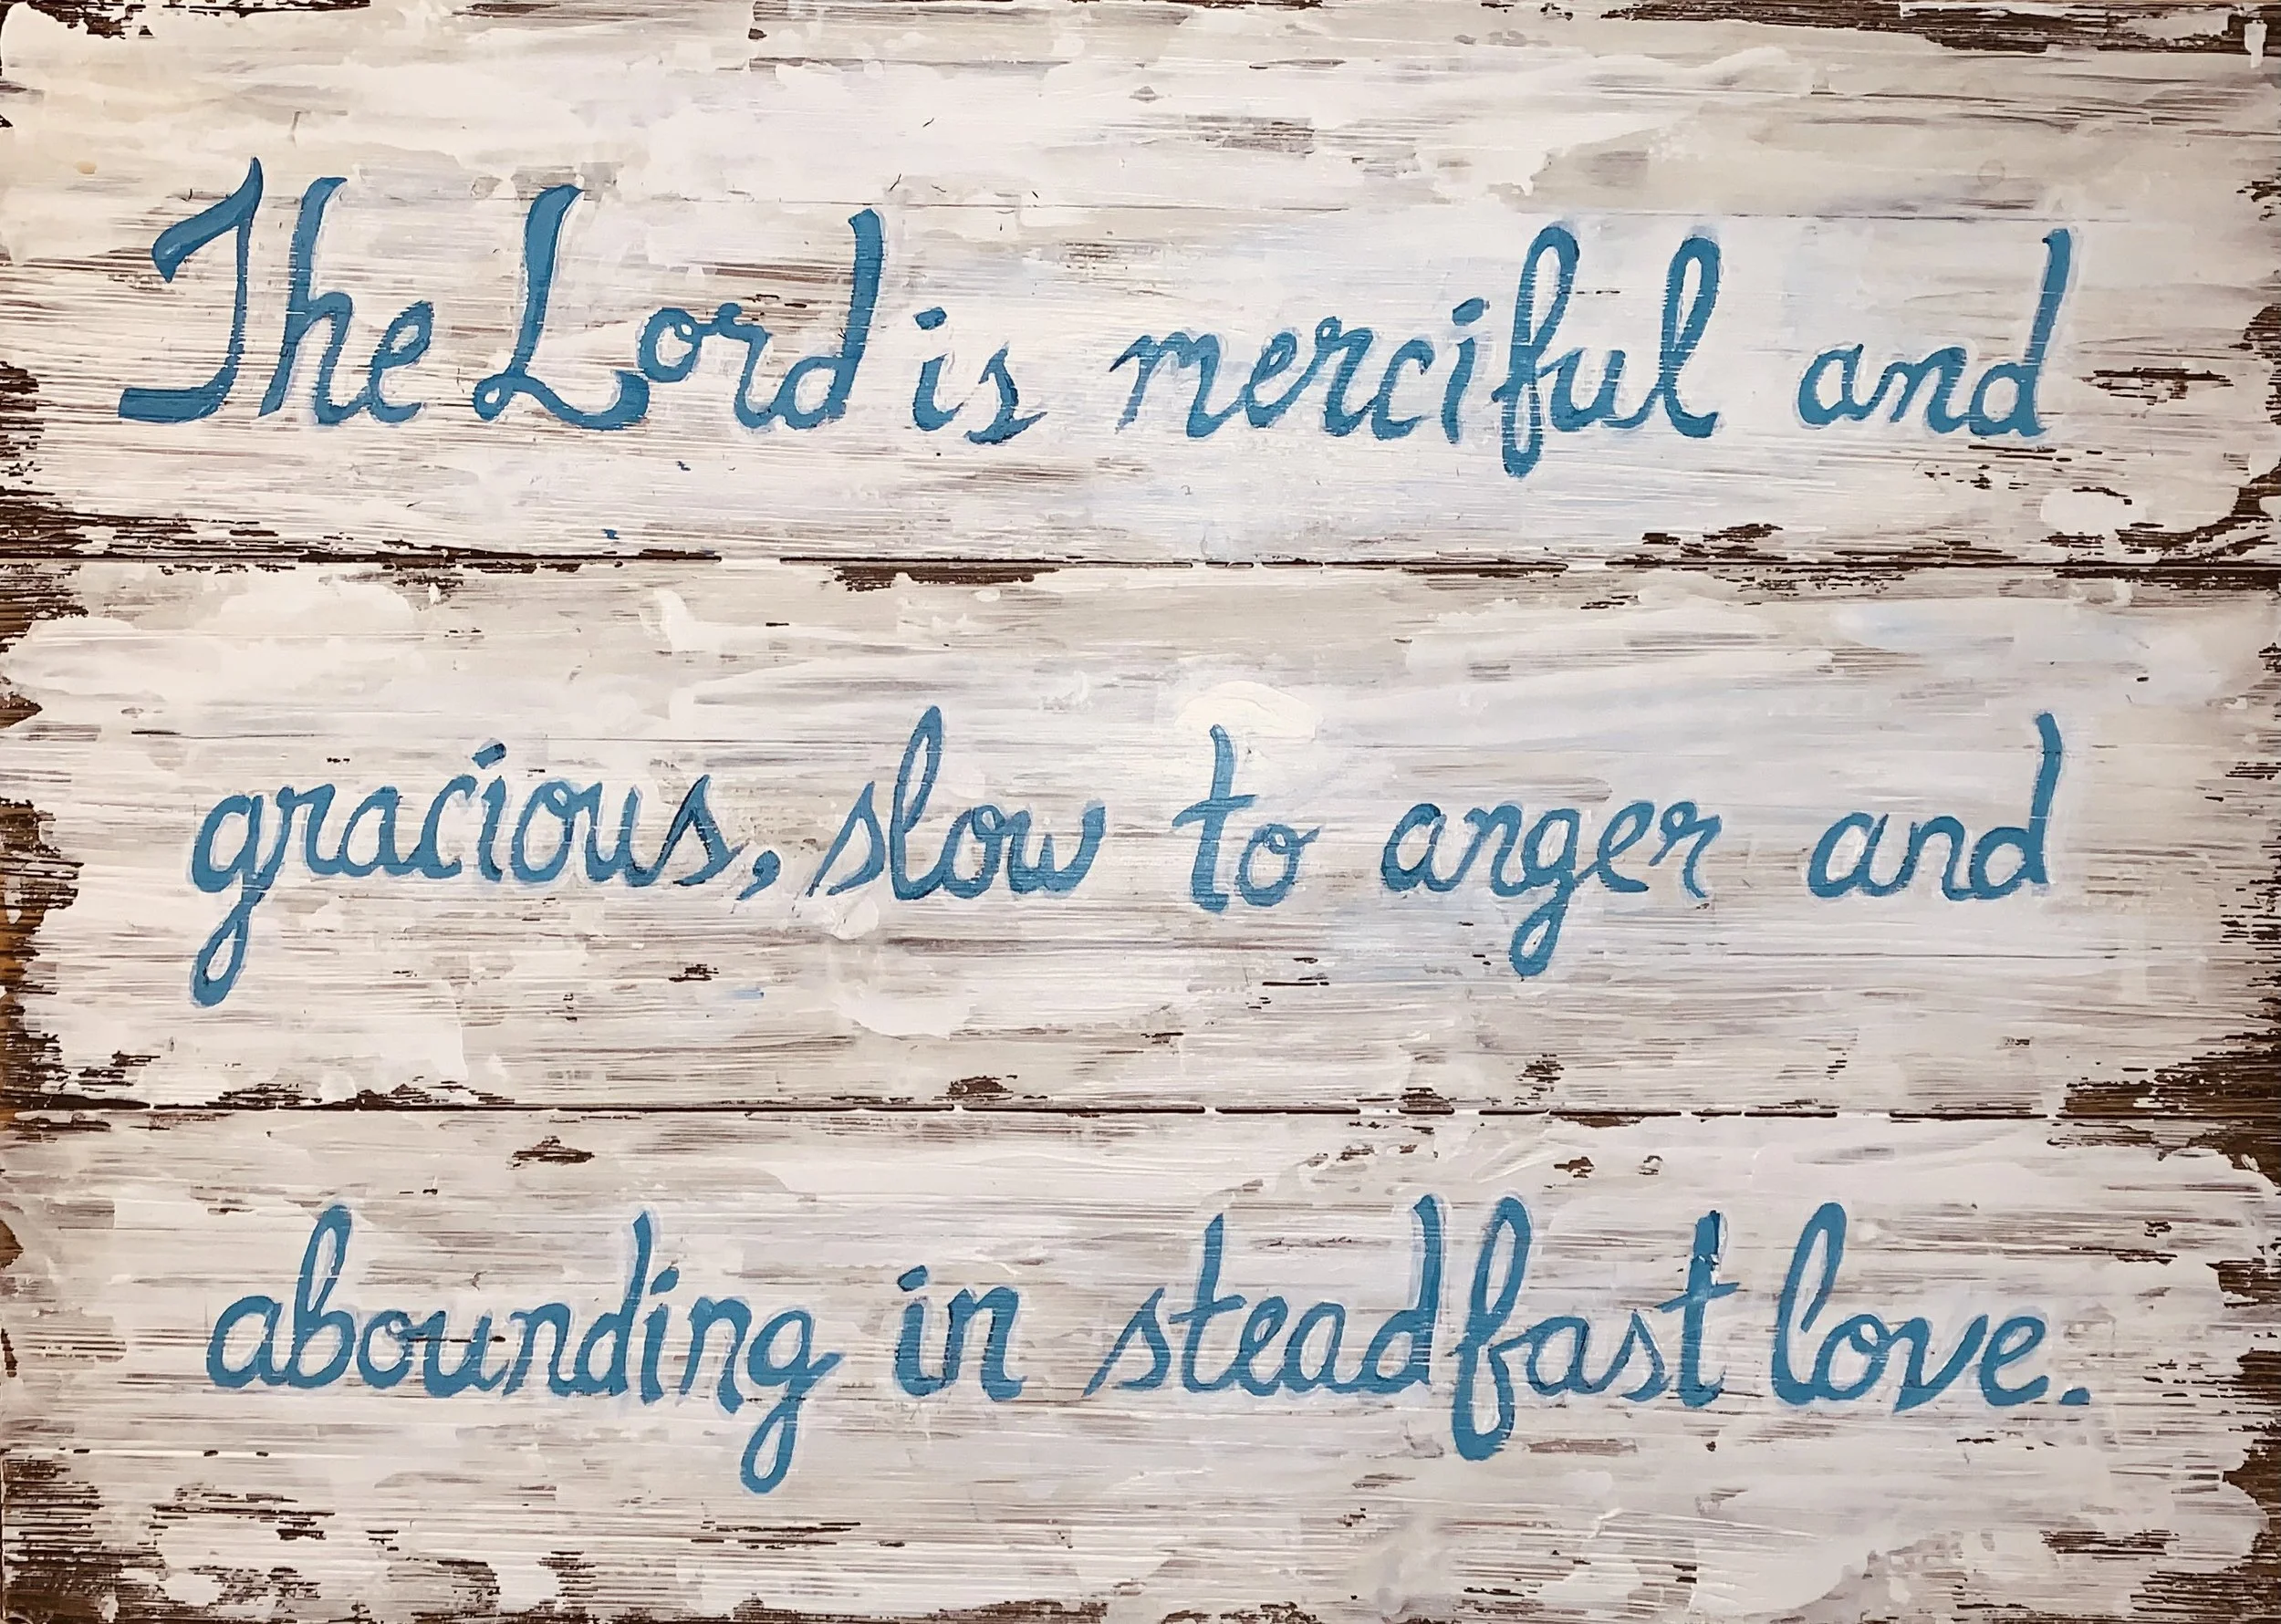 The Lord is merciful and
gracious, slow to anger and
abounding in steadfast love.